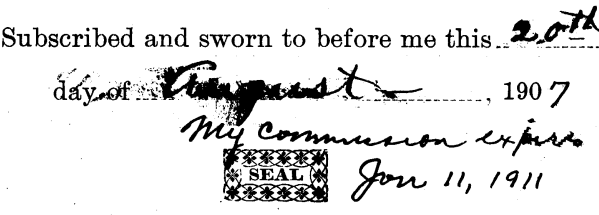 Subscribed and sworn to before me this 20th
day of August, 1907
My commission expires
SEAL Jan 11, 1911